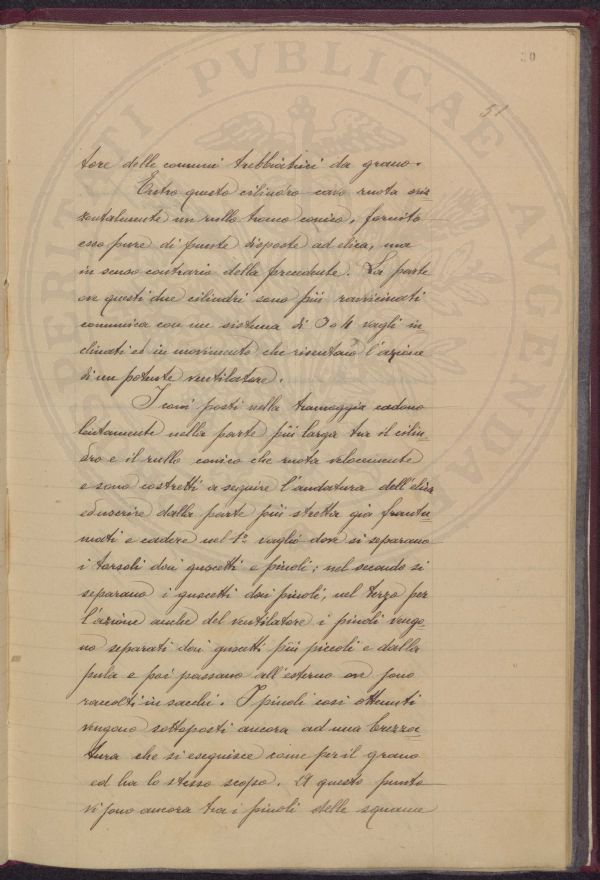 30
51
tore delle comuni trebbiatrici da grano.
Entro questo cilindro cavo ruota oriz
zontalmente un rullo tronco conico, fornito
esso pure di punte disposte ad elica, ma
in senso contrario della precedente. La parte
ove questi due cilindri sono più ravvicinati
comunica con un sistema di 3 o 4 vagli in
clinati ed in movimento che risentano l'azione
di un potente ventilatore.
I coni posti nella tramoggia cadono
lentamente nella parte più larga tra il cilin
dro e il rullo conico che ruota velocemente
e sono costretti a seguire l'andatura dell'elica
ed uscire dalla parte più stretta già frantu
mati e cadere nel 1º vaglio dove si separano
i torsoli dai guscetti e pinoli; nel secondo si
separano i guscetti dai pinoli, nel terzo per
l'azione anche del ventilatore i pinoli vengo
no separati dai guscetti più piccoli e dalla
pula e poi passano all'esterno ove sono
raccolti in sacchi. I pinoli così ottenuti
vengono sottoposti ancora ad una brezza
tura che si eseguisce come per il grano
ed ha lo stesso scopo. A questo punto
vi sono ancora tra i pinoli delle squame
PERITATI PVBLICAE AVGENDAE